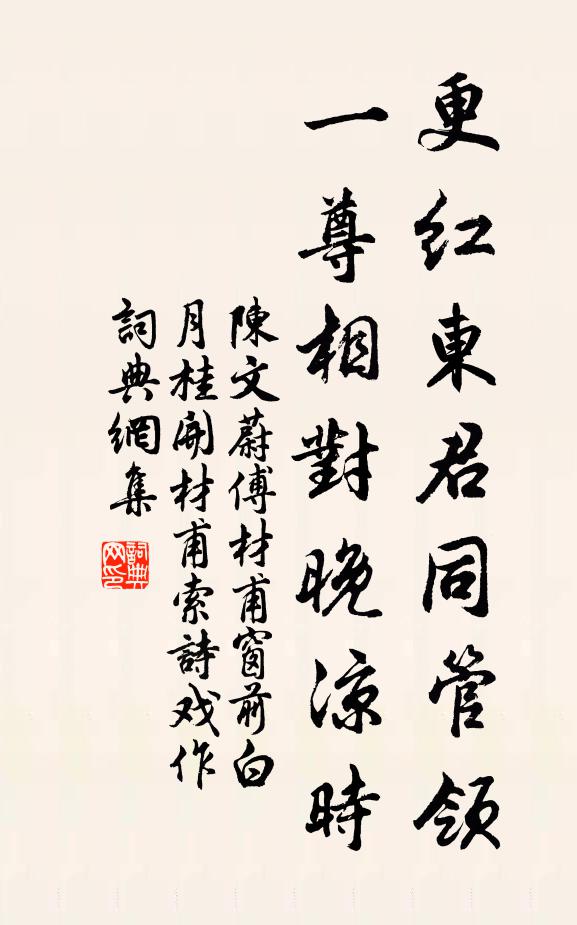 更红東君同管領
一尊相對晚涼時
陳文蔚傅材甫窗前白
月桂開材甫索詩戏作
詞典網集
詞典网印